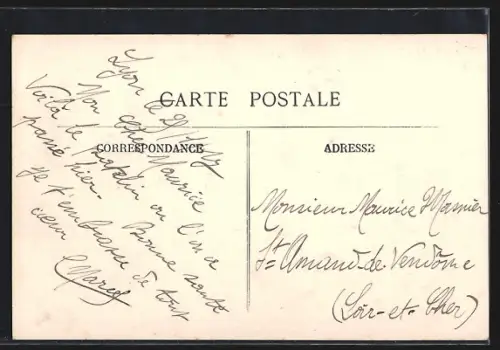 CARTE POSTALE
CORRESPONDANCE
ADRESSE
Lyon le
Mon cher Maurice
Voilà le où l'on a
passé hier. Bonne santé
Je t'embrasse de tout
cœur
Monsieur Maurice
St Amand-de-Vendôme
(Loir-et-Cher)